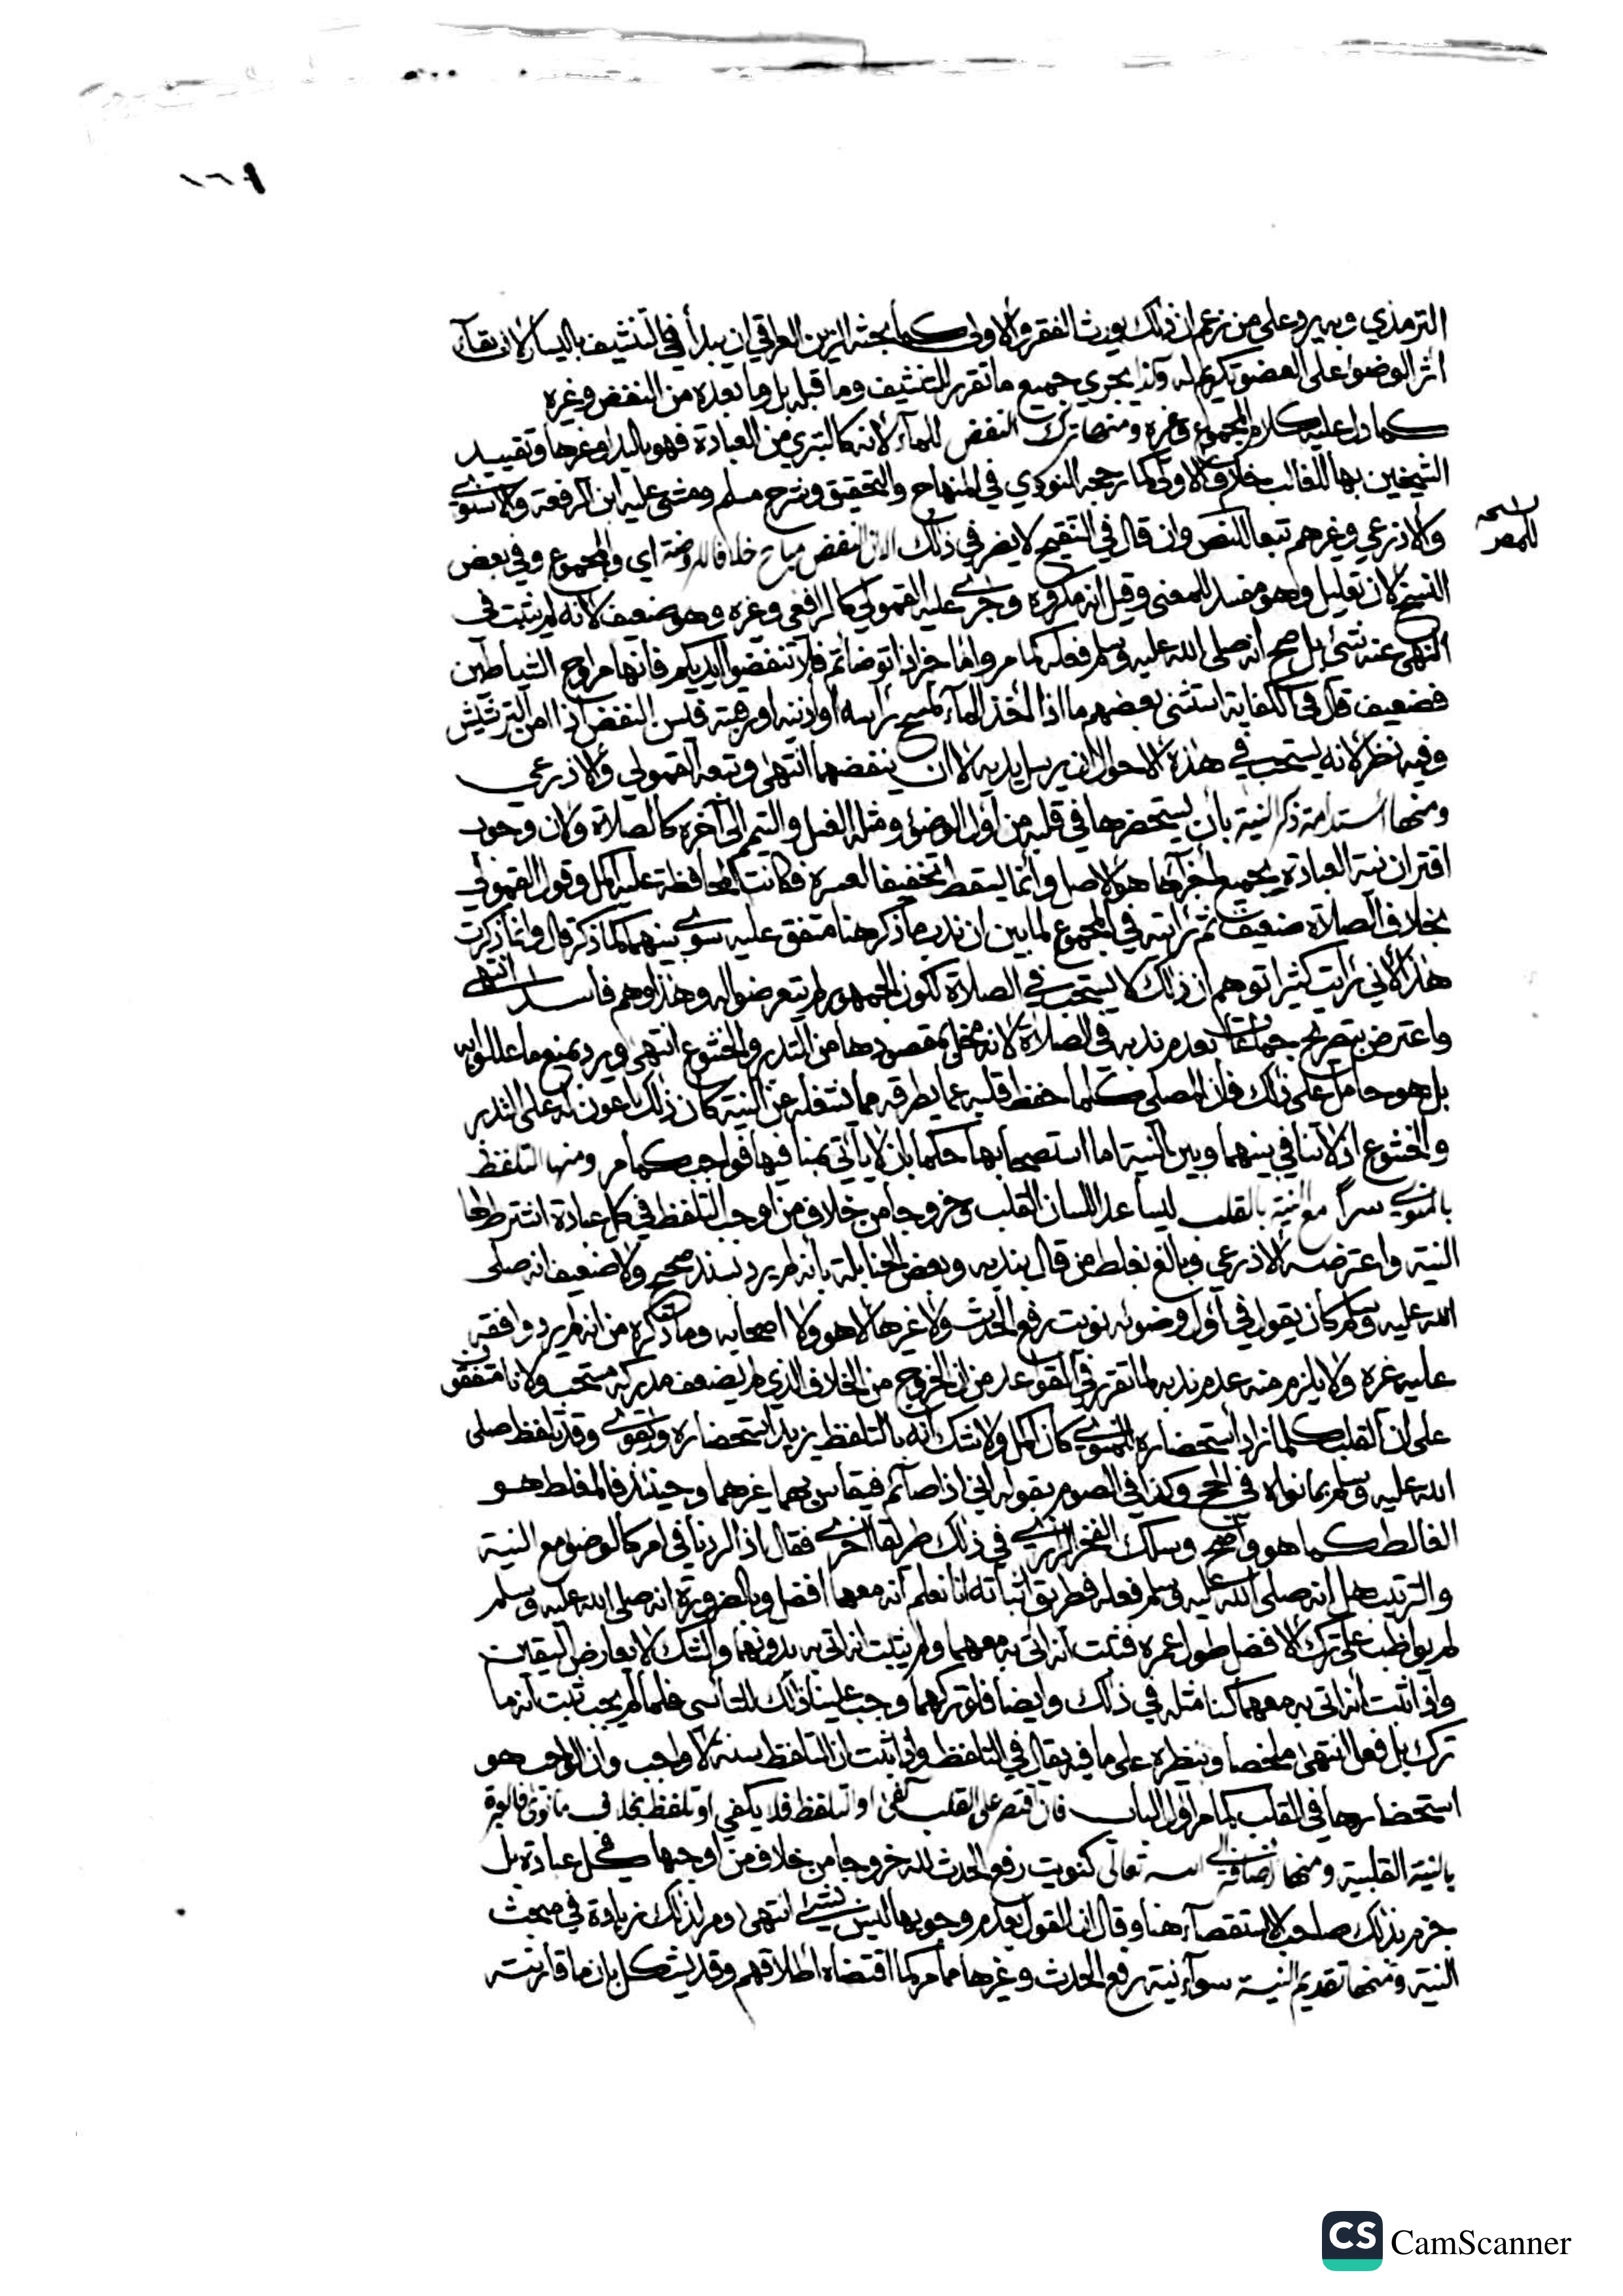 ١٦٩
الترمذي وبه يرد على من زعم ان ذلك يورث الفقر والاولى كما بحثه الزين العراقي ان يبدأ في التنشيف باليسار لان بقآء
اثر الوضوء على العضو تكريم له وكذا يجري جميع ما تقرر للتنشيف وما قبله بل وما بعده من النفض وغيره
كما دل عليه كلام المجموع وغيره ومنها ترك النفض للمآء لانه كالتبري من العبادة فهو باليد او غيرها وتقييد
الشيخين بها للغالب خلاف الاولى كما رجحه النووي في المنهاج والتحقيق وشرح مسلم ومشى عليه ابن الرفعة والاسنوي
والاذرعي وغيرهم تبعا للنص وان قال في التنقيح لا يضر في ذلك النفض مباح خلافا للروضة اي والمجموع وفي بعض
النسخ لان تعليل وهو مفسد للمعنى وقيل انه مكروه وجرى عليه القمولي كالرافعي وغيره وهو ضعيف لانه لم يثبت في
النهي عنه شئ بل صح انه صلى الله عليه وسلم فعله كما مر واما خبر اذا توضاتم فلا تنفضوا ايديكم فانها مراوح الشياطين
فضعيف قال في الكفاية استثنى بعضهم ما اذا اخذ المآء لمسح راسه او اذنيه او رقبته فليس النفض اذا امن الترشيش
وفيه نظر لانه يستحب في هذه الاحوال ان يرسل يديه لا ان ينفضهما انتهى وتبعه القمولي والاذرعي
ومنها استدامة ذكر النية بأن يستحضرها في قلبه من اول الوضوء ومثله الغسل والتيمم الى آخره كالصلاة ولان وجوب
اقتران نية العبادة بجميع اجزآئها هو الاصل وانما ليسقط تخفيفا لعسره فكانت المحافظة عليه اكمل وقول القمولي
بخلاف الصلاة ضعيف ثم رايته في المجموع لما بين ان ندب ما ذكر هنا متفق عليه سوى بينهما كما ذكر قال وانما ذكرت
هذا لأني رأيت كثيرا توهم ان ذلك لا يستحب في الصلاة لكون الجمهور لم يتعرضوا له وهذا وهم فاسد انتهى
واعترض بتصريح جماعة بعدم ندبه في الصلاة لانه مخل بمقصودها من التدبر والخشوع انتهى ويرد بمنع ما عللوا به
بل هو حامل على ذلك فان المصلي كلما حفظ قلبه عما يطرقه مما يشغله عن النية كان ذلك اعون له على التدبر
والخشوع اذ لا تنافي بينهما وبين النية اما استصحابها حكما بان لا يأتي بمنافيها فواجب كما مر ومنها التلفظ
بالمنوي سراً مع النية بالقلب ليساعد اللسان القلب وخروجا من خلاف من اوجب التلفظ في كل عبادة اشترط لها
النية واعترضه الاذرعي وبالغ بغلط من قال بندبه وبعض الحنابلة بانه لم يرد بسند صحيح ولا ضعيف انه صلى
الله عليه وسلم كان يقول في اول وضوئه نويت رفع الحدث ولا غيرها لا هو ولا اصحابه وما ذكره من انه لم يرد وافقه
عليه غيره ولا يلزم منه عدم ندبه لما تقرر في القواعد من ان الخروج من الخلاف الذي لم يضعف مدركه مستحب ولانا متفقون
على ان القلب كلما زاد استحضاره للمنوي كان اكمل ولا شك انه بالتلفظ يزيد استحضاره وتقوى وقد تلفظ صلى
الله عليه وسلم بما نواه في الحج وكذا في الصوم بقوله اني اذا صآئم فيقاس بهما غيرهما وحينئذ فالمغلط هو
الغالط كما هو واضح وسلك الفخر الرازي في ذلك طريقا اخرى فقال اذا اردنا في امر كالوضوء مع النية
والترتيب هل انه صلى الله عليه وسلم فعله فطريق اثباته انا نعلم انه معهما افضل وبالضرورة انه صلى الله عليه وسلم
لم يواظب على ترك الافضل طول عمره فثبت انه اتى به معهما ولم يثبت انه اتى به بدونهما والشك لا يعارض اليقين
واذا ثبت انه اتى به معهما كنا مثله في ذلك وايضا فلو تركهما وجب علينا ذلك للتأسي فلما لم يجب ثبت انه ما
تركه بل فعل انتهى ملخصا ونظيره على ما فيه يقال في التلفظ واذا ثبت ان التلفظ سنة لا واجب وان الواجب هو
استحضارها في القلب كما مر اول الباب فان اقتصر على القلب كفى او التلفظ فلا يكفي او تلفظ بخلاف ما نوى فالعبرة
بالنية القلبية ومنها اضافتها الى الله تعالى كنويت رفع الحدث لله خروجا من خلاف من اوجبها في كل عبادة بل
جزم بذلك صاحب الاستقصآء هنا وقال ان القول بعدم وجوبها ليس بشئ انتهى ومر لذلك زيادة في مبحث
النية ومنها تقديم النية سوآء نية رفع الحدث وغيرها مما مر كما اقتضاه اطلاقهم وقد يشكل بان ما قارنته
CS CamScanner